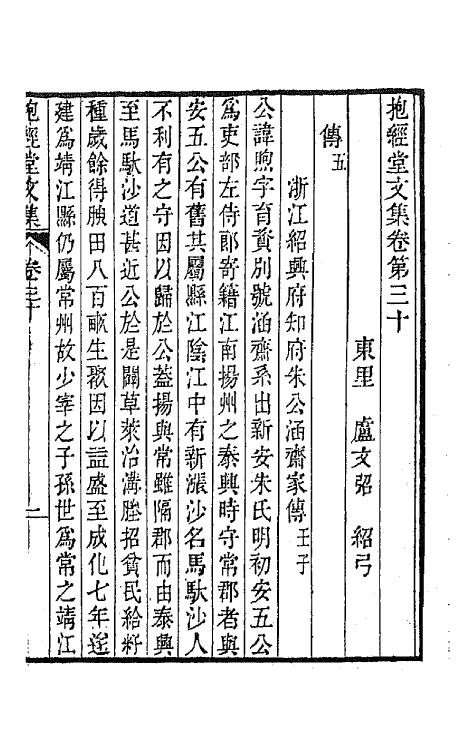 抱經堂文集卷第三十
東里　盧文弨　紹弓
傳五
浙江紹興府知府朱公涵齋家傳壬子
公諱煦字育賫別號涵齋系出新安朱氏明初安五公
爲吏部左侍郎寄籍江南揚州之泰興時守常郡者與
安五公有舊其屬縣江陰江中有新漲沙名馬馱沙人
不利有之守因以歸於公蓋揚與常雖隔郡而由泰興
至馬馱沙道甚近公於是闢草萊治溝塍招貧民給籽
種歲餘得腴田八百畝生聚因以益盛至成化七年遂
建爲靖江縣仍屬常州故少宰之子孫世爲常之靖江
抱經堂文集　卷三十　一